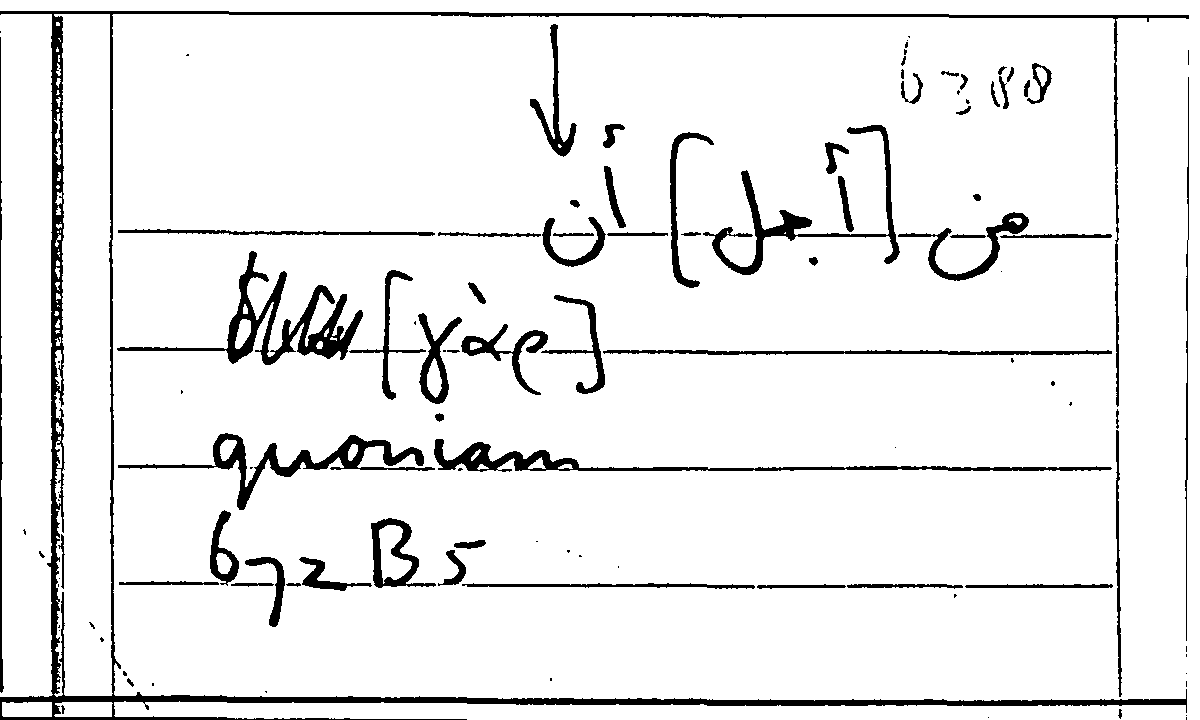 6388
من [أجل] أن
[γὰρ]
quoniam
672 B 5